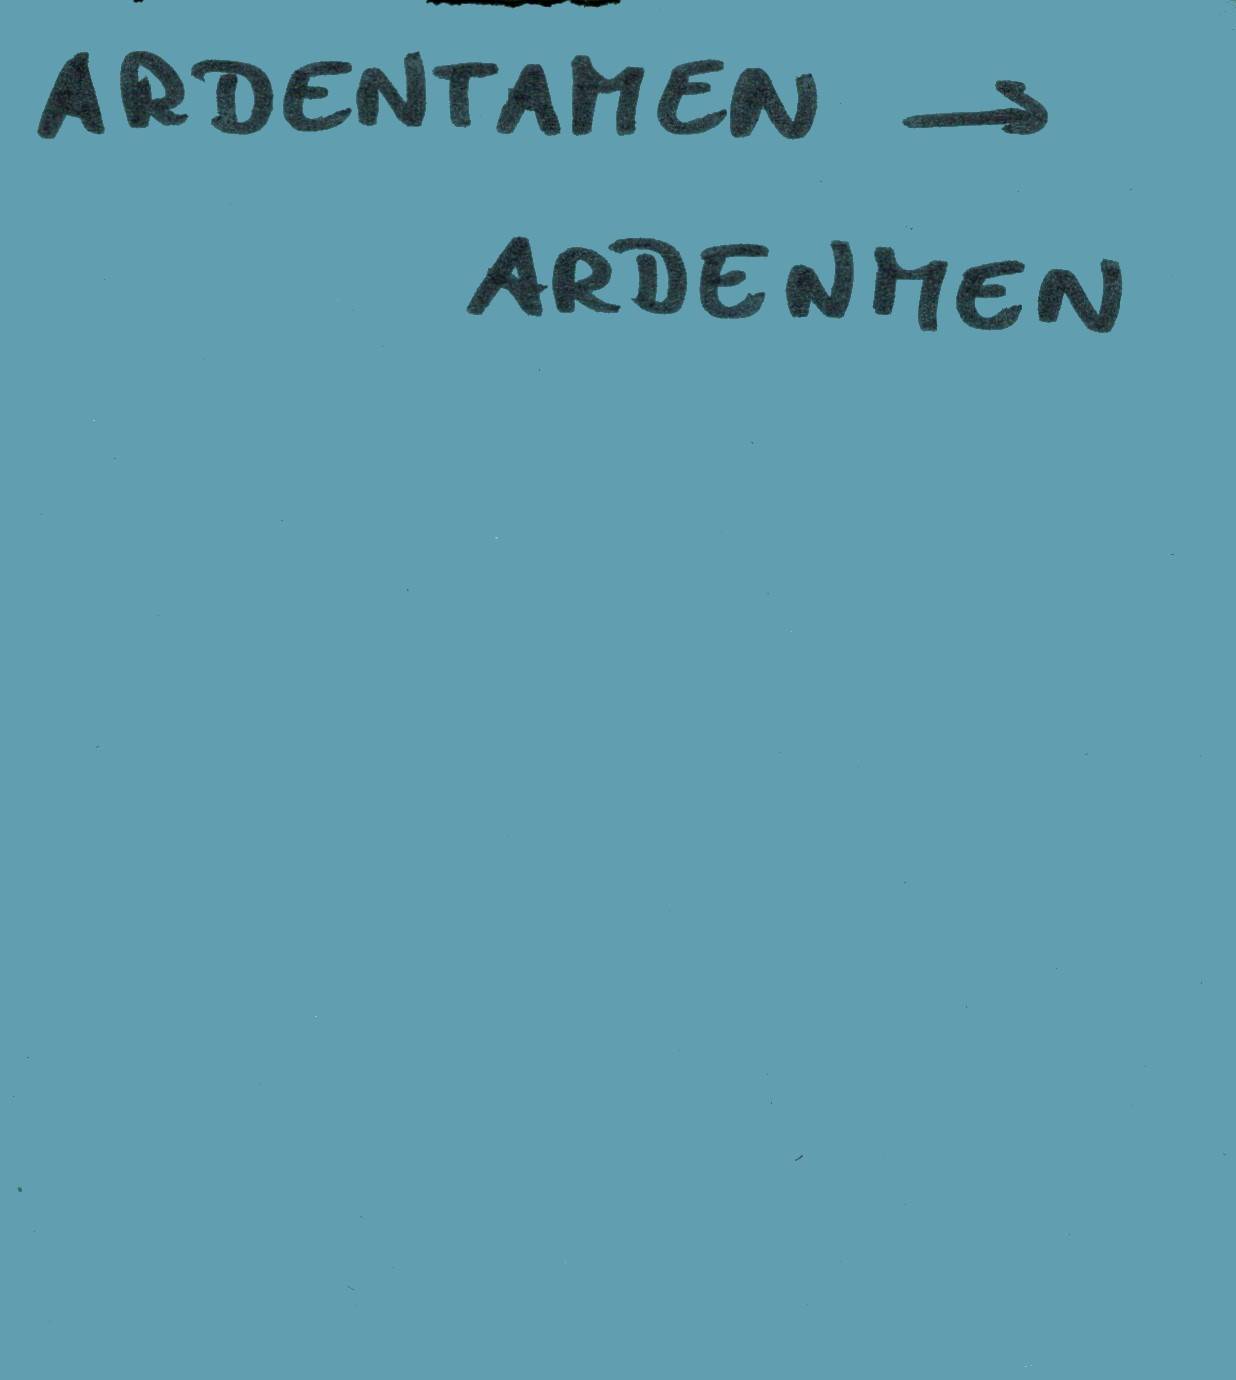 ARDENTAMEN →
ARDENMEN